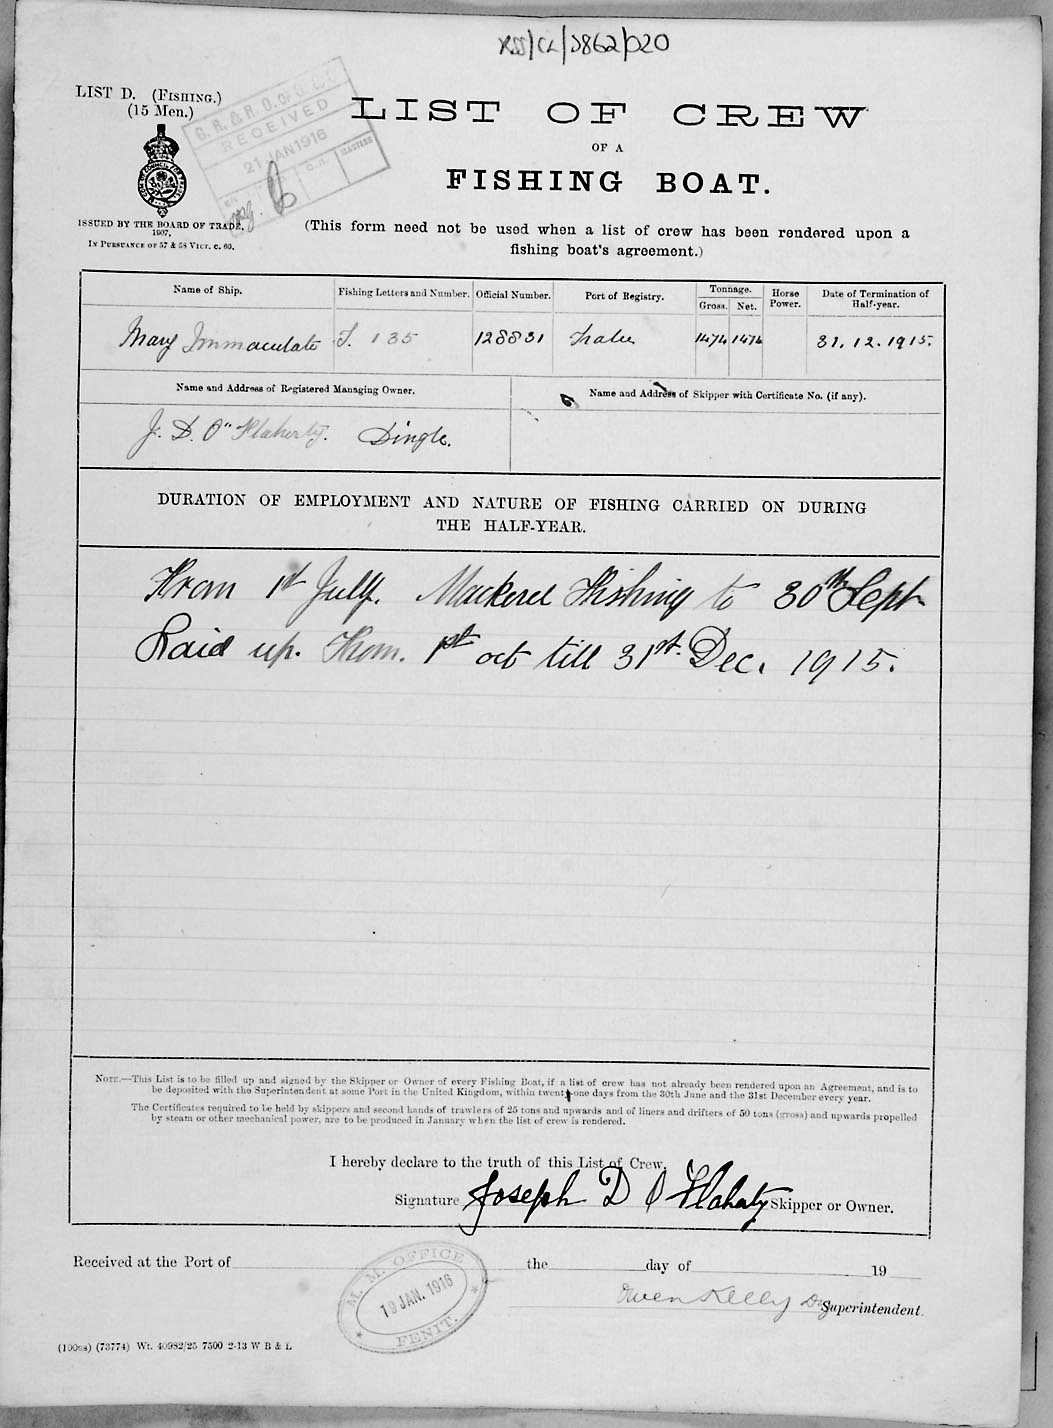 LIST D. (FISHING.)
(15 Men.)
G. R. & R. O. of S.
RECEIVED
21 JAN 1916
MASTERS
ISSUED BY THE BOARD OF TRADE.
1907.
IN PURSUANCE OF 57 & 58 VICT. C. 60.
LIST OF CREW
OF A
FISHING BOAT.
(This form need not be used when a list of crew has been rendered upon a
fishing boat's agreement.)
Name of Ship. Fishing Letters and Number. Official Number. Port of Registry. Tonnage. Horse Power. Date of Termination of Half-year.
Gross. Net.
Mary Immaculate T. 135 128831 Tralee 1474 1474 31.12.1915.
Name and Address of Registered Managing Owner. Name and Address of Skipper with Certificate No. (if any).
J. D. O'Flaherty. Dingle.
DURATION OF EMPLOYMENT AND NATURE OF FISHING CARRIED ON DURING
THE HALF-YEAR.
From 1st July. Mackerel Fishing to 30th Sept
Laid up. From. 1st oct till 31st. Dec. 1915.
NOTE.—This List is to be filled up and signed by the Skipper or Owner of every Fishing Boat, if a list of crew has not already been rendered upon an Agreement, and is to
be deposited with the Superintendent at some Port in the United Kingdom, within twenty-one days from the 30th June and the 31st December every year.
The Certificates required to be held by skippers and second hands of trawlers of 25 tons and upwards and of liners and drifters of 50 tons (gross) and upwards propelled
by steam or other mechanical power, are to be produced in January when the list of crew is rendered.
I hereby declare to the truth of this List of Crew.
Signature Joseph D O Flahaty Skipper or Owner.
Received at the Port of the day of 19
M. M. OFFICE
19 JAN. 1916
FENIT.
Owen Kelly Superintendent.
(100es) (73774) Wt. 40982/25 7500 2-13 W B & L